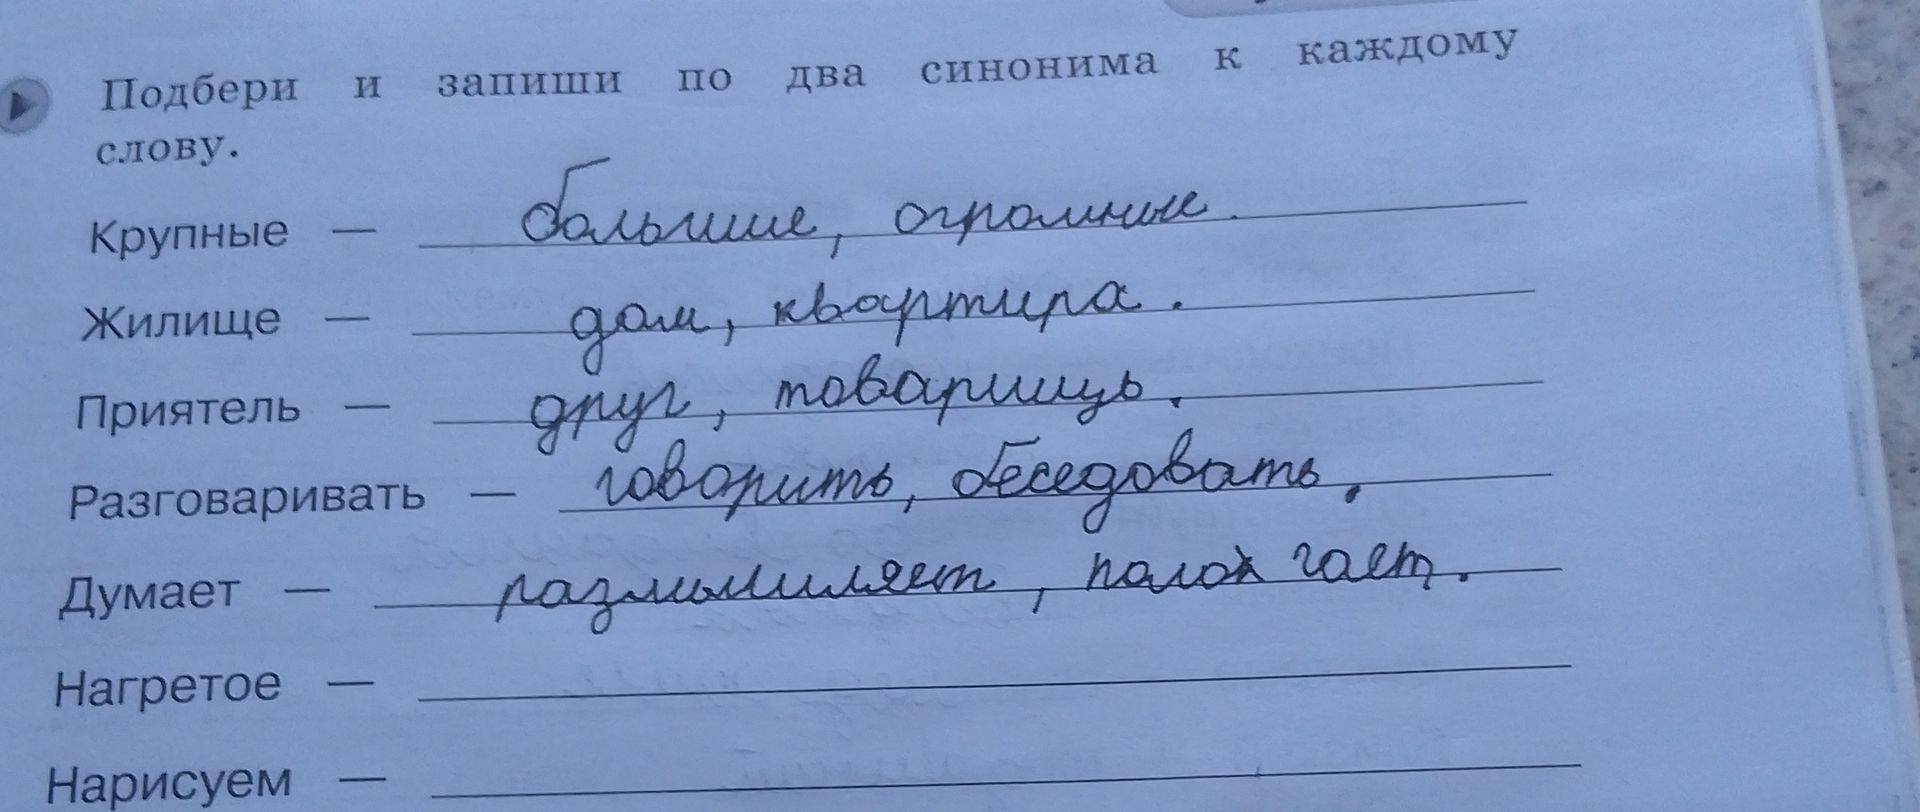 Подбери и запиши по два синонима к каждому
слову.
Крупные — большие, огромные.
Жилище — дом, квартира.
Приятель — друг, товарищь.
Разговаривать — говорить, беседовать.
Думает — размышляет, полагает.
Нагретое —
Нарисуем —